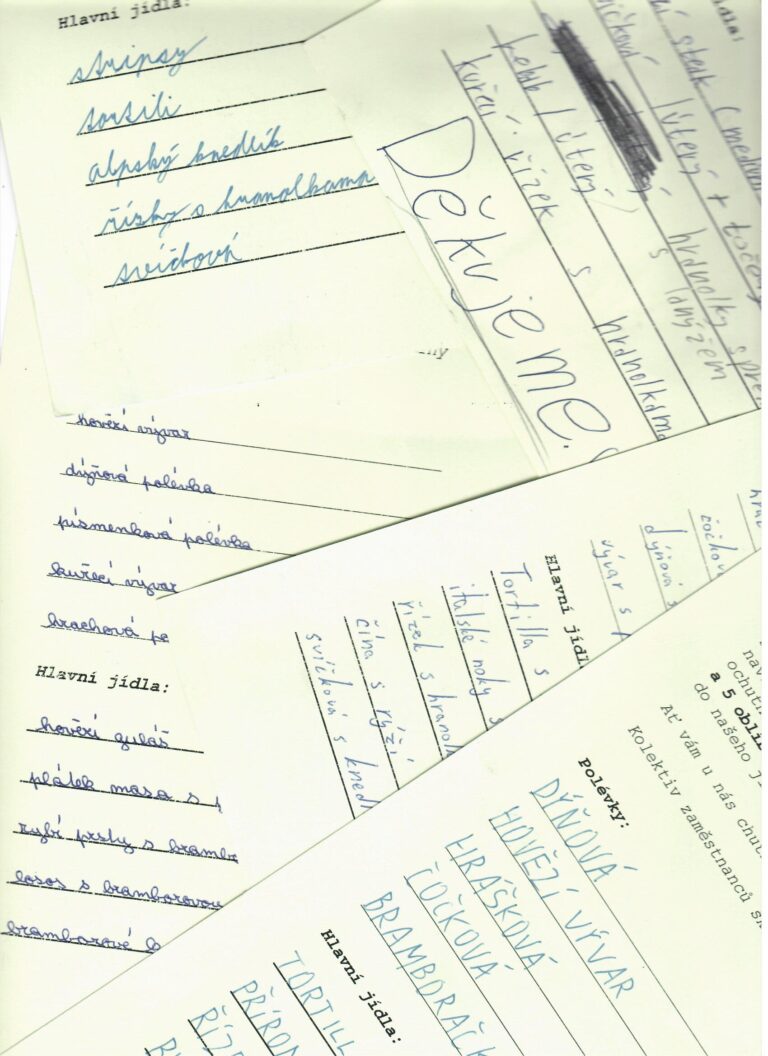 Hlavní jídla:
stripsy
tortili
alpský knedlík
řízky s hranolkama
svíčková
steak (
lúterý + točený
s hranolky s
kebab lúterý s lanýžem
kuřecí řízek s hranolkama
Děkujeme.
hovězí vývar
dýňová polévka
písmenková polévka
kuřecí vývar
hrachová po
Hlavní jídla:
hovězí guláš
plátek masa s
rybí prsty s brambr
losos s bramborovou
bramborové
čočkov
dýňová s
vývar s
Hlavní jídl
Tortilla s
italské noky s
řízek s hranol
čína s rýží
svíčková s knedl
ochutn
a 5 oblí
do našeho jí
Ať vám u nás chutn
Kolektiv zaměstnanců šk
Polévky:
DÝŇOVÁ
HOVĚZÍ VÝVAR
HRÁŠKOVÁ
ČOČKOVÁ
BRAMBORAČK
Hlavní jídla:
TORTILL
PŘÍROD
ŘÍZE